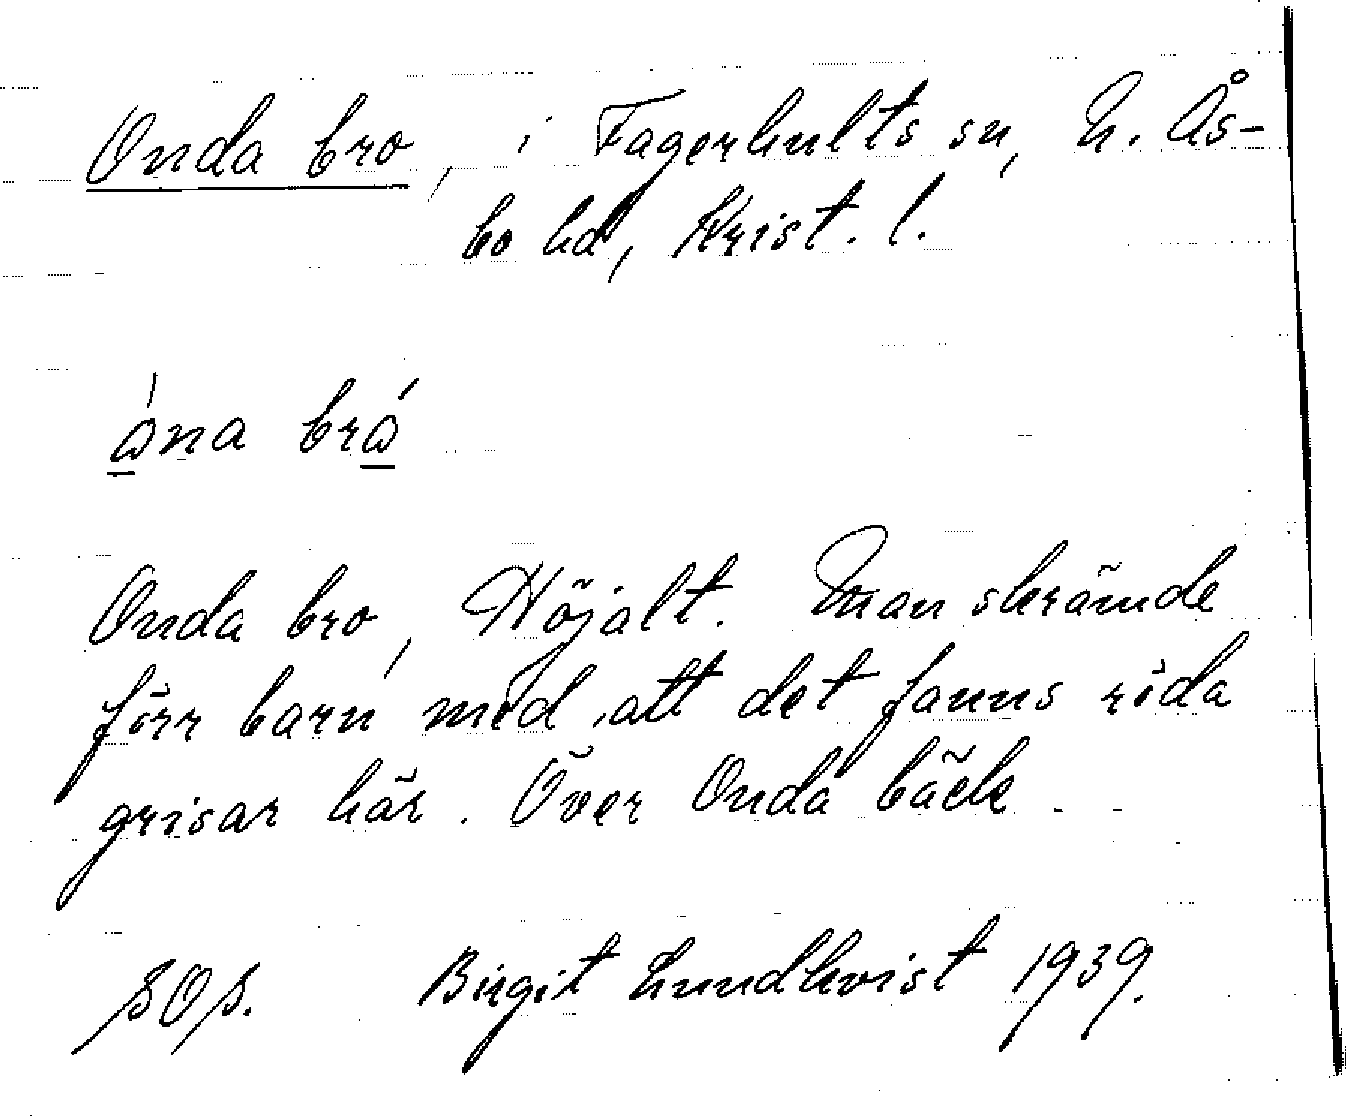 Onda bro, i Fagerhults sn, N. Ås-
bo hd, Krist. l.
ó̲na bró̲
Onda bro, Höjalt. Man skrämde
förr barn med att det fanns röda
grisar här. Över Onda bäck.
SOS. Birgit Lundkvist 1939.